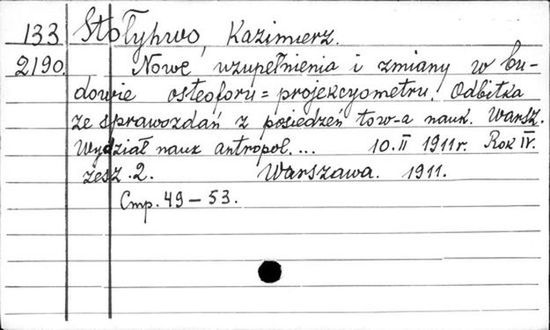 133 Stołyhwo, Kazimierz.
2190. Nowe uzupełnienia i zmiany w bu-
dowie osteoforu=projekcyometru. Odbitka
ze sprawozdań z posiedzeń tow-a nauk. Warsz.
Wydział nauk antropol.... 10.II 1911 r. Rok IV.
zesz. 2. Warszawa. 1911.
Cmp. 49-53.